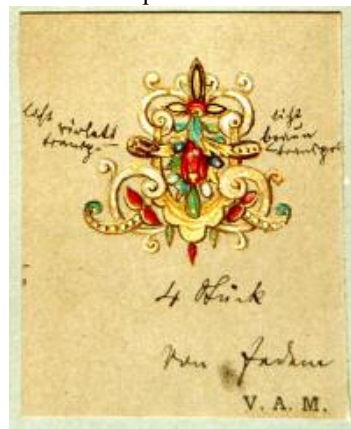 licht
violett
transp.
licht
braun
transp.
4 Stück
von Jedem
V. A. M.